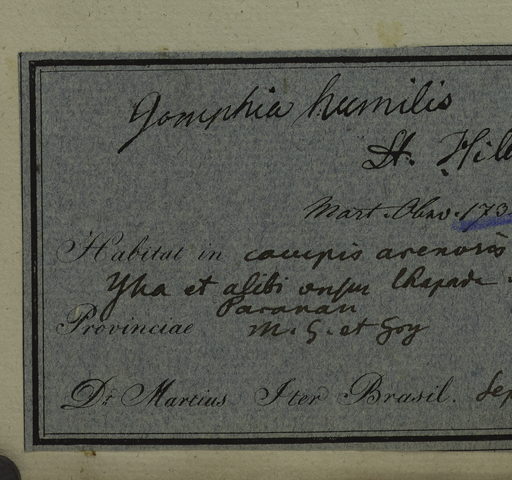 Gomphia humilis
St. Hil
Mart. Obsv. 173
Habitat in campis arenosis
Yha et alibi versus Chapada
Paranan
Provinciae M. G. et Goy
Dr. Martius Iter Brasil. Sep